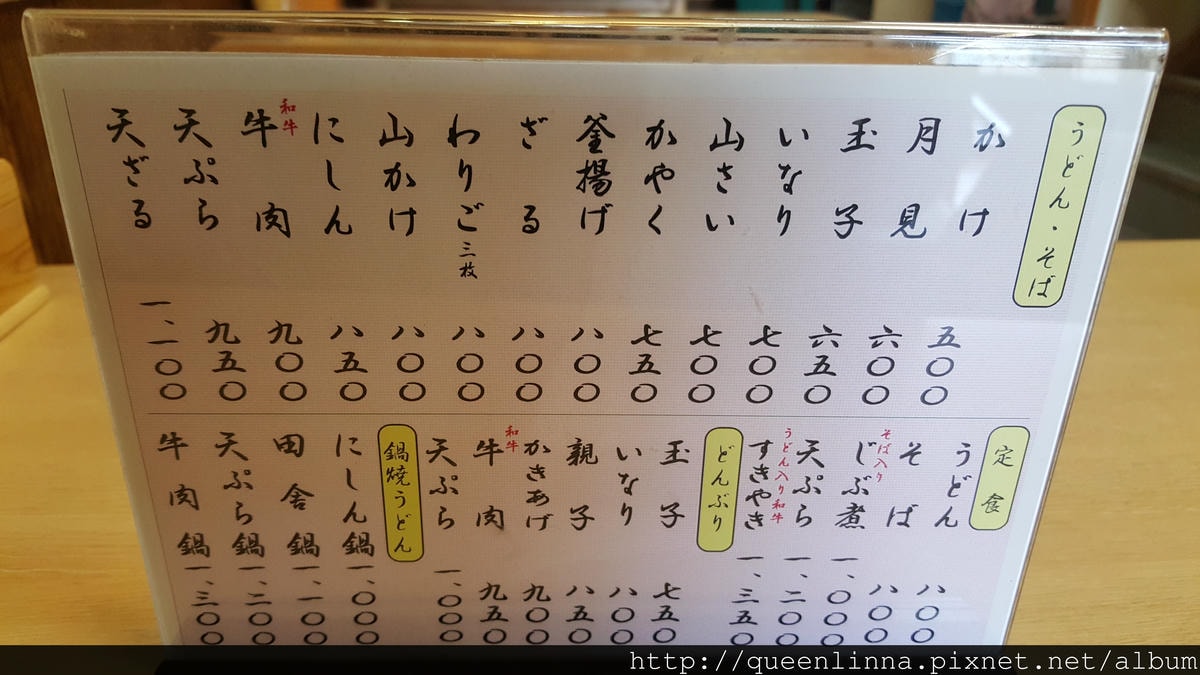 うどん・そば
かけ 五〇〇
月見 六〇〇
玉子 六五〇
いなり 七〇〇
山さい 七〇〇
かやく 七五〇
釜揚げ 八〇〇
ざる 八〇〇
わりご 三枚 八〇〇
山かけ 八〇〇
にしん 八五〇
和牛
牛肉 九〇〇
天ぷら 九五〇
天ざる 一、一〇〇
定食
うどん 八〇〇
そば 八〇〇
そば入り
じぶ煮 一、〇〇〇
天ぷら 一、二〇〇
うどん入り和牛
すきやき 一、三五〇
どんぶり
玉子 七五〇
いなり 八〇〇
親子 八五〇
かきあげ 九〇〇
和牛
牛肉 九五〇
天ぷら 一、〇〇〇
鍋焼うどん
にしん鍋 一、〇〇〇
田舎鍋 一、一〇〇
天ぷら鍋 一、二〇〇
牛肉鍋 一、三〇〇
http://queenlinna.pixnet.net/album